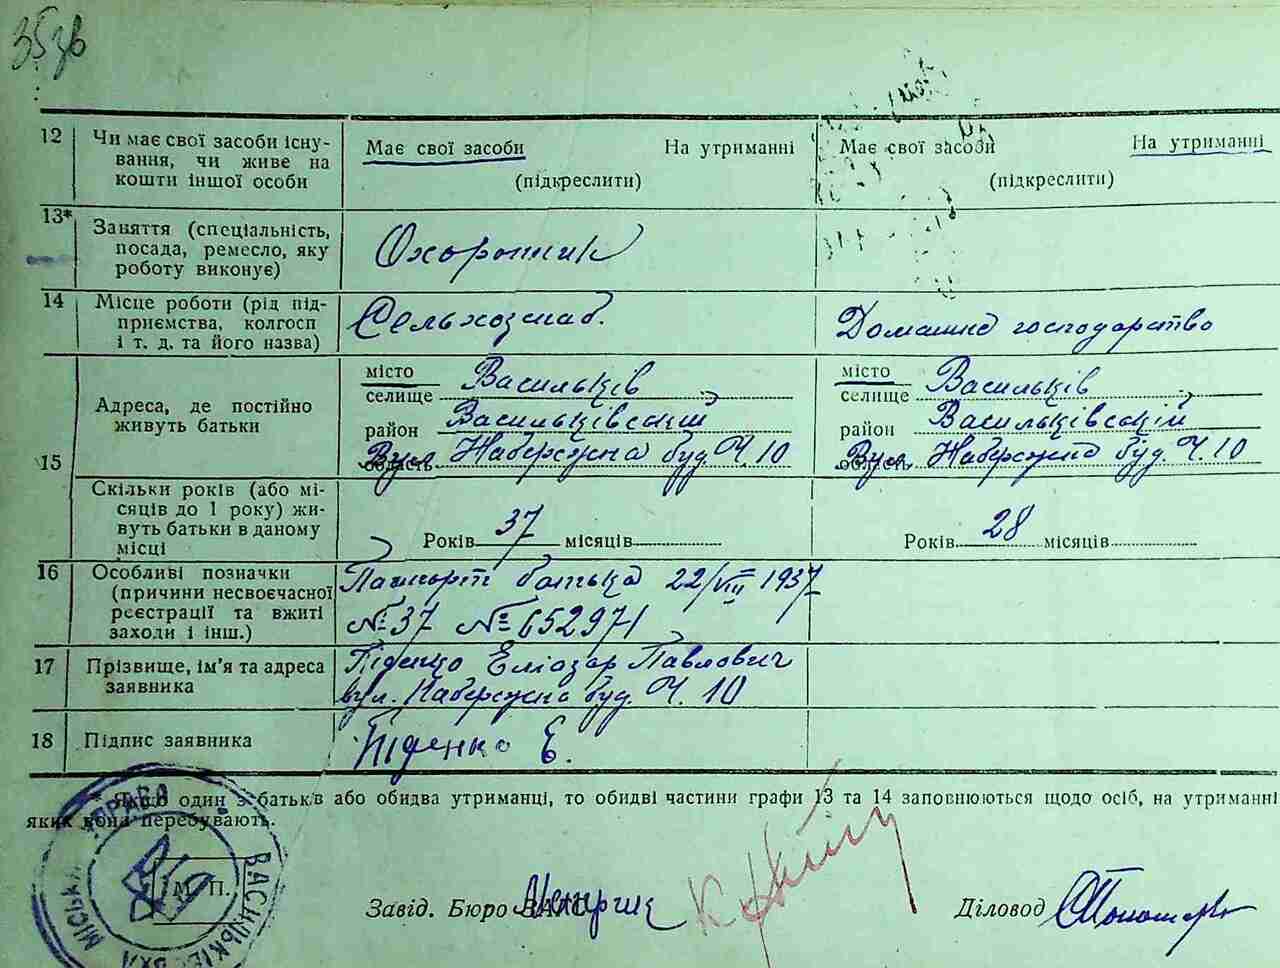 35зв
12 Чи має свої засоби існу-
вання, чи живе на
кошти іншої особи
Має свої засоби На утриманні
(підкреслити)
Має свої засоби На утриманні
(підкреслити)
13* Заняття (спеціальність,
посада, ремесло, яку
роботу виконує)
Охоронник
14 Місце роботи (рід під-
приємства, колгосп
і т. д. та його назва)
Сельхозснаб.
Домашнє господарство
15 Адреса, де постійно
живуть батьки
місто Васильків
селище
район Васильківський
область Вул. Набережна буд. Ч. 10
місто Васильків
селище
район Васильківський
область Вул. Набережна буд. Ч. 10
Скільки років (або мі-
сяців до 1 року) жи-
вуть батьки в даному
місці
Років 37 місяців
Років 28 місяців
16 Особливі позначки
(причини несвоєчасної
реєстрації та вжиті
заходи і інш.)
Пашпорт батька 22/VIII 1937
№ 37 № 652971
17 Прізвище, ім'я та адреса
заявника
Піденко Еліозар Павлович
вул. Набережна буд. Ч. 10
18 Підпис заявника
Піденко Е.
* Якщо один з батьків або обидва утриманці, то обидві частини графи 13 та 14 заповнюються щодо осіб, на утриманні
яких вони перебувають.
М. П.
Завід. Бюро ЗАГС
Діловод
МІСЬКА УПРАВА
ВАСИЛЬКІВ